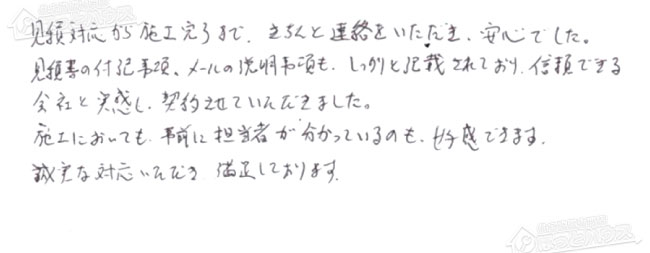 見積対応から施工完了まで、きちんと連絡をいただき、安心でした。
見積書の付記事項、メールの説明事項も、しっかりと記載されており、信頼できる
会社と実感し、契約させていただきました。
施工においても、事前に担当者が分かっているのも、好感できます。
誠実な対応いただき、満足しております。